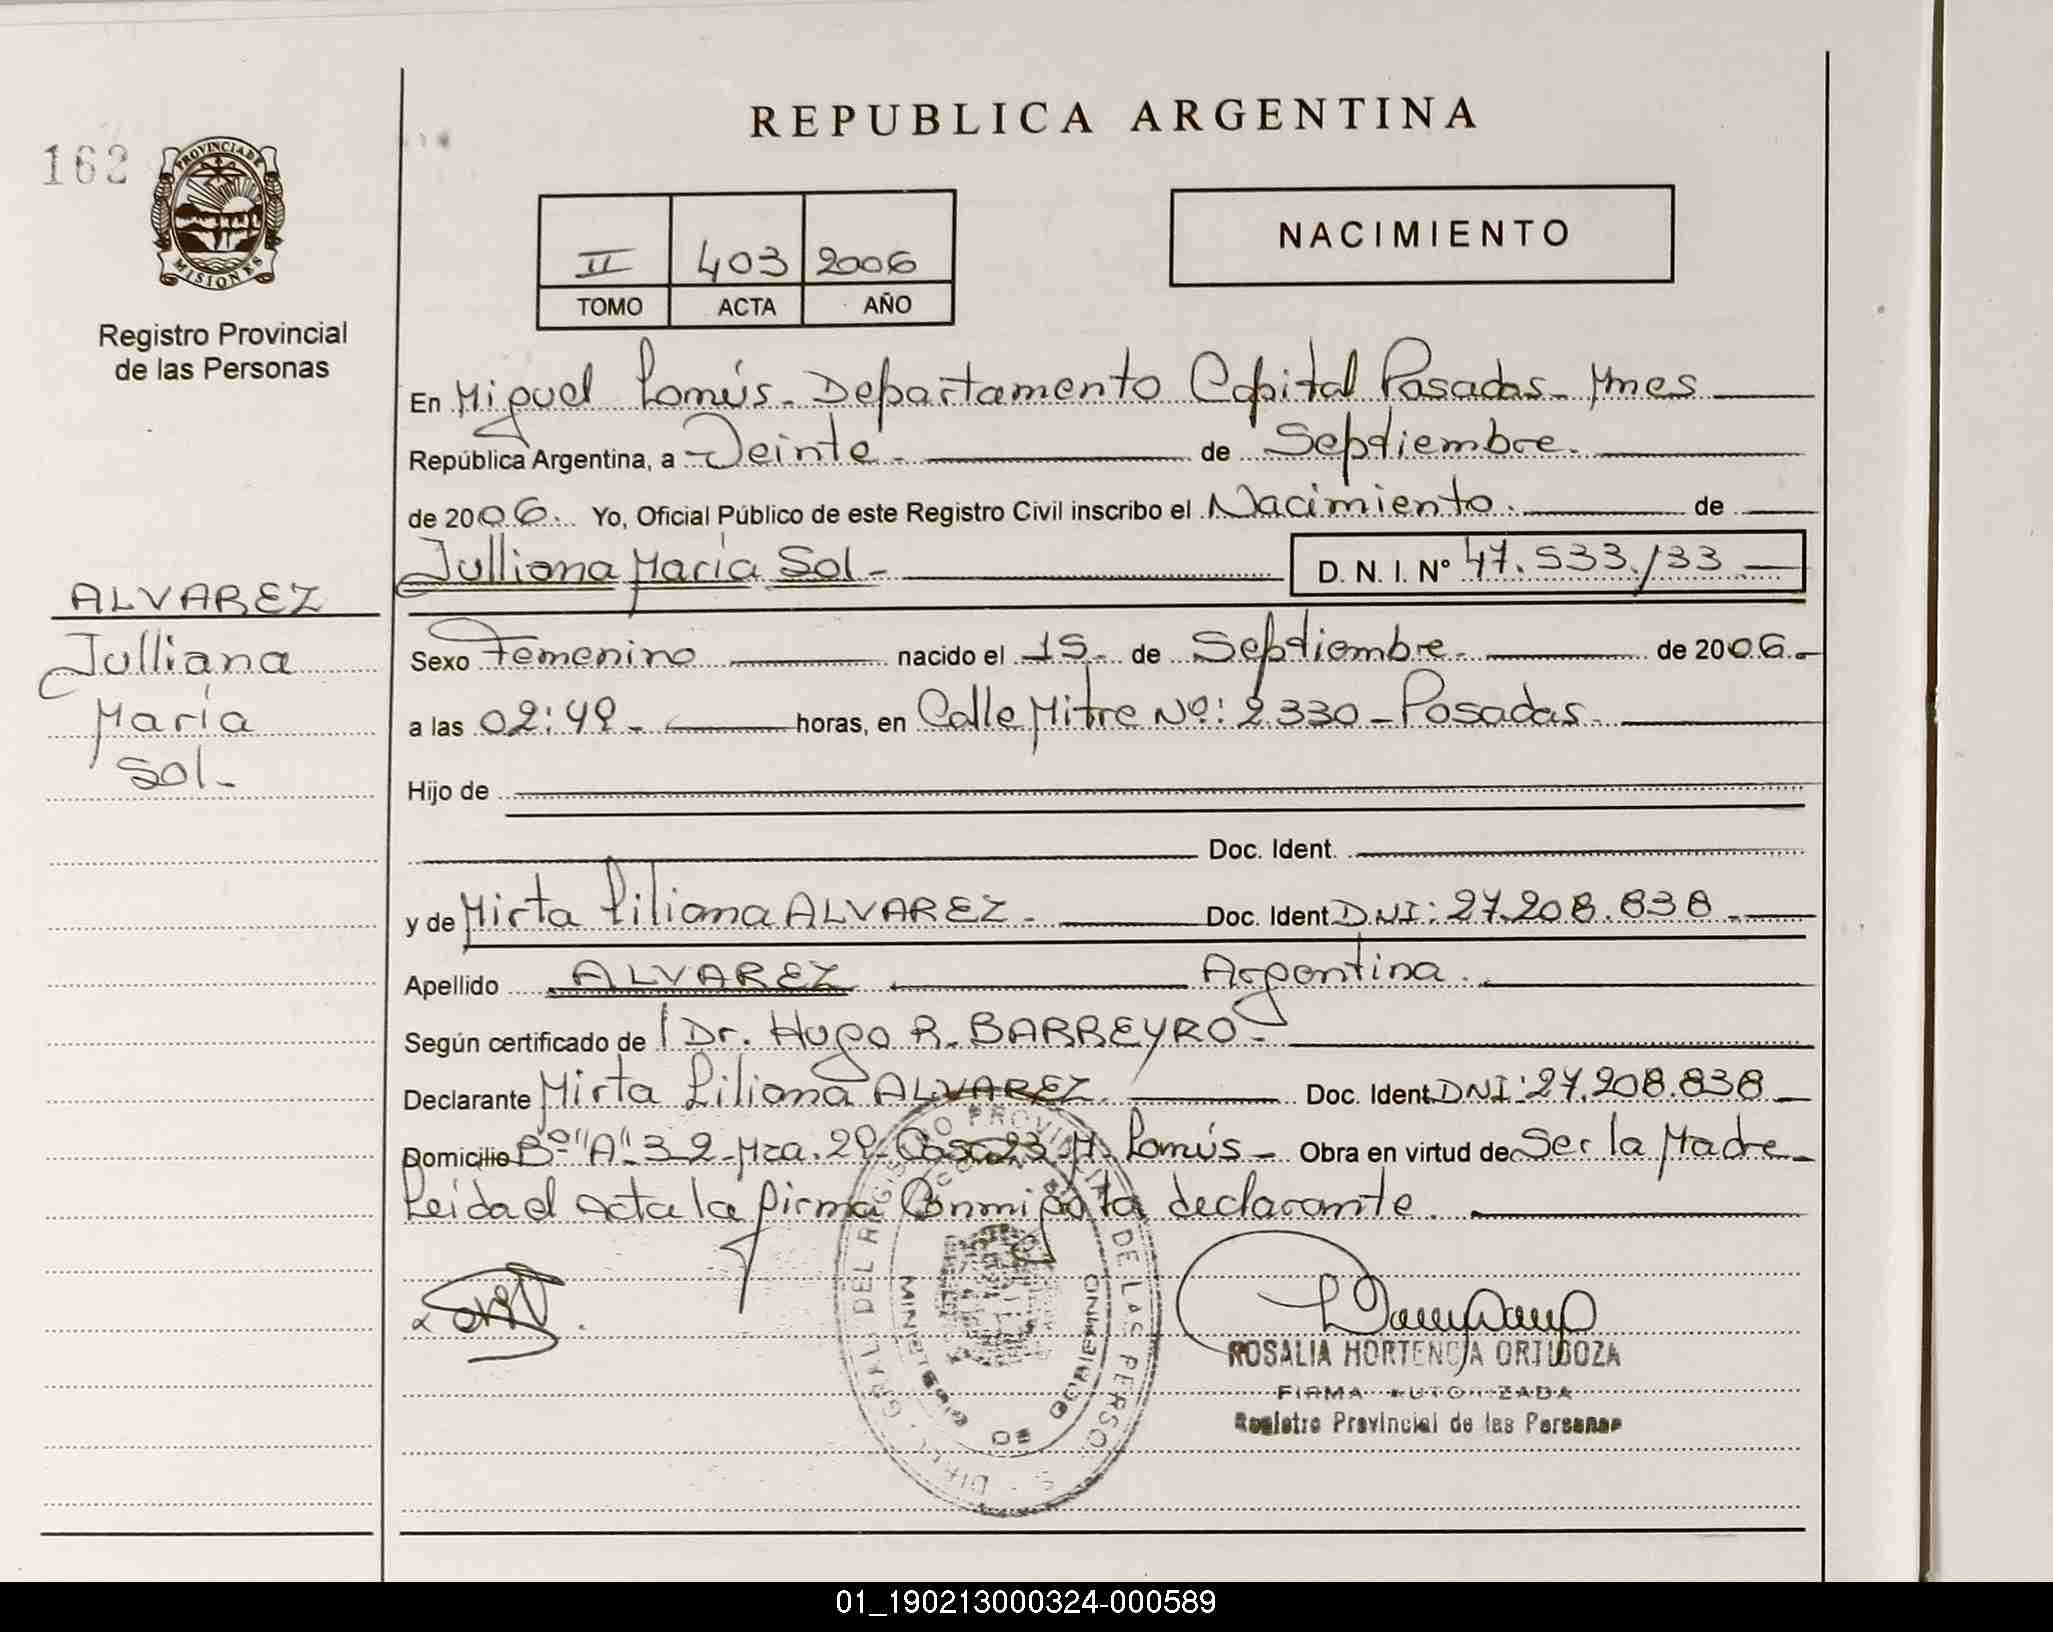 162
PROVINCIA DE
MISIONES
Registro Provincial
de las Personas
REPUBLICA ARGENTINA
NACIMIENTO
II 403 2006
TOMO ACTA AÑO
En Miguel Lanús - Departamento Capital Posadas - Mnes
República Argentina, a Veinte - de Septiembre.
de 2006. Yo, Oficial Público de este Registro Civil inscribo el Nacimiento. de
Julliana María Sol - D. N. I. Nº 47.533.133.
ALVAREZ
Julliana
María
Sol.-
Sexo Femenino nacido el 15 de Septiembre. de 2006.
a las 02:49 - horas, en Calle Mitre Nº: 2.330 - Posadas.
Hijo de
Doc. Ident.
y de Mirta Liliana ALVAREZ - Doc. Ident DNI: 27.208.838.
Apellido ALVAREZ Argentina.
Según certificado de Dr. Hugo R. BARREYRO -
Declarante Mirta Liliana ALVAREZ. Doc. Ident DNI: 27.208.838
Domicilio Bº "A" 3 2 - Mza. 29 - Casa 23 - M. Lanús - Obra en virtud de Ser la Madre -
Leida el acta la firma Conmigo la declarante.
ROSALIA HORTENCIA ORTIGOZA
FIRMA AUTORIZADA
Registro Provincial de las Personas
MINISTERIO DE GOBIERNO
01_190213000324-000589